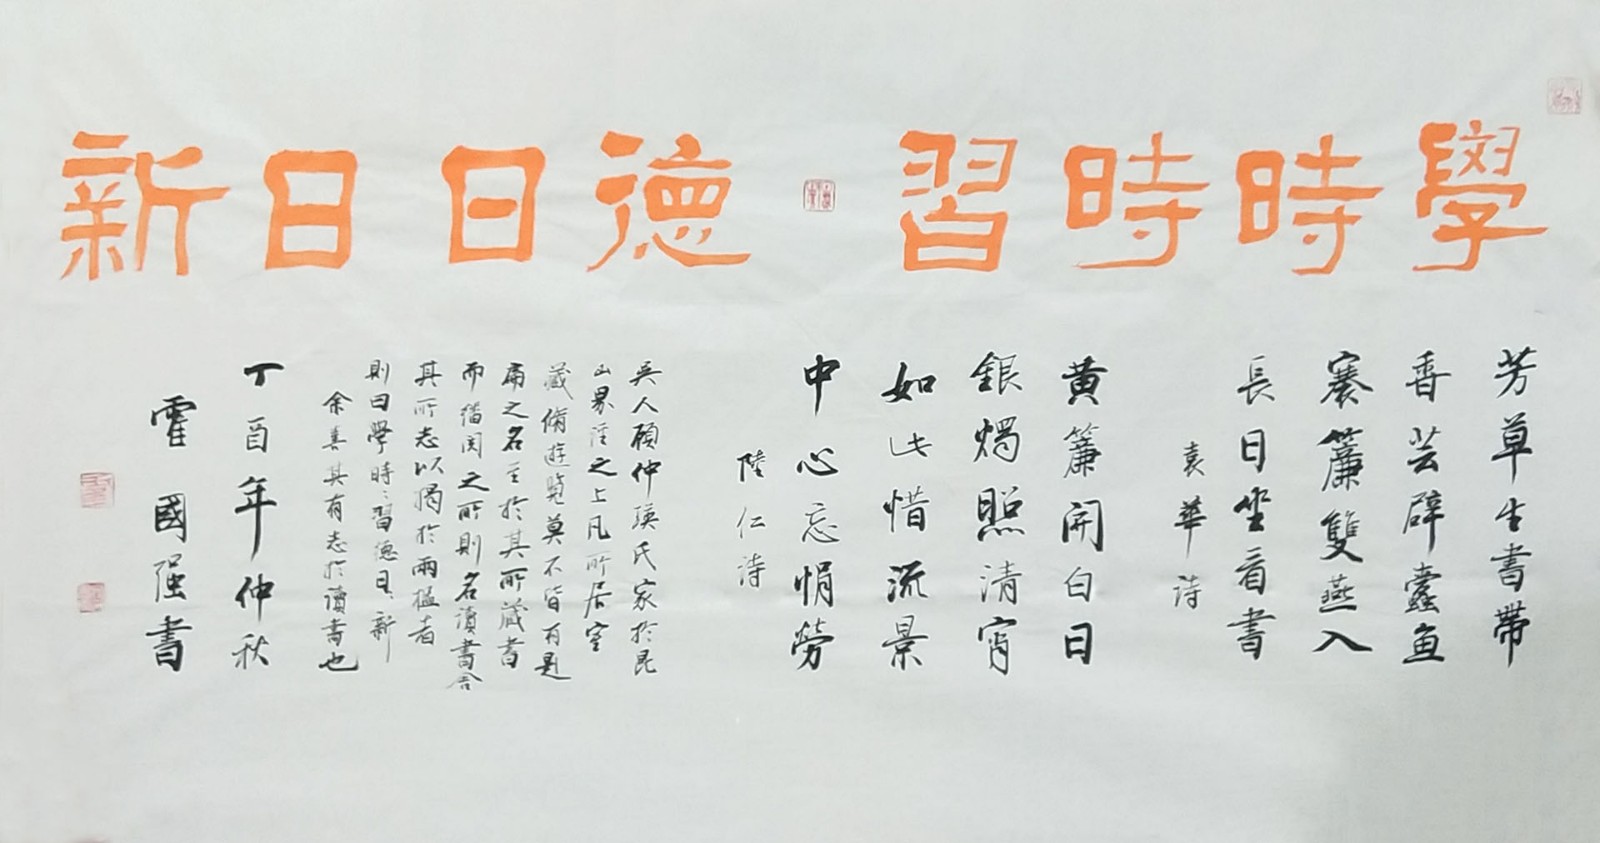 學時時習
德日日新
芳草生書帶
香芸辟蠹魚
褰簾雙燕入
長日坐看書
袁華詩
黄簾開白日
銀燭照清宵
如此惜流景
中心忘悁勞
陸仁詩
吳人顧仲瑛氏家於昆
山界涇之上凡所居室
藏脩遊覽莫不皆有題
扁之名至於其所藏書
而繙閱之所則名讀書舍
其所志以揭於兩楹者
則曰學時時習德日日新
余喜其有志於讀書也
丁酉年仲秋
霍國强書